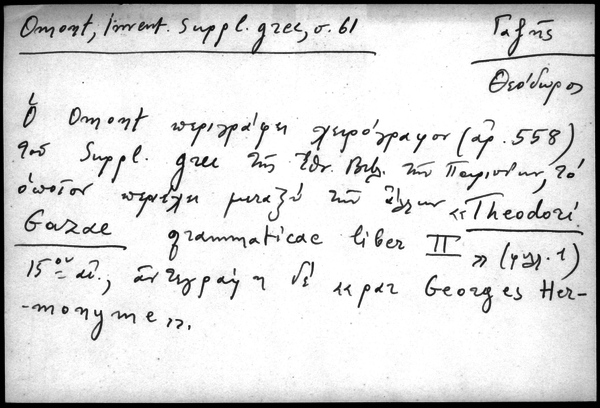 Omont, Invent. Suppl. grec, σ. 61
Γαζῆς
Θεόδωρος
Ὁ Omont περιγράφει χειρόγραφον (ἀρ. 558)
τοῦ Suppl. grec τῆς Ἐθν. Βιβ. τῶν Παρισίων, τό
ὁποῖον περιέχει μεταξύ τῶν ἄλλων «Theodori
Gazae grammaticae liber II» (φυλ. 1)
15ου αἰ., ἀντεγράφη δέ «par Georges Her-
-monyme».